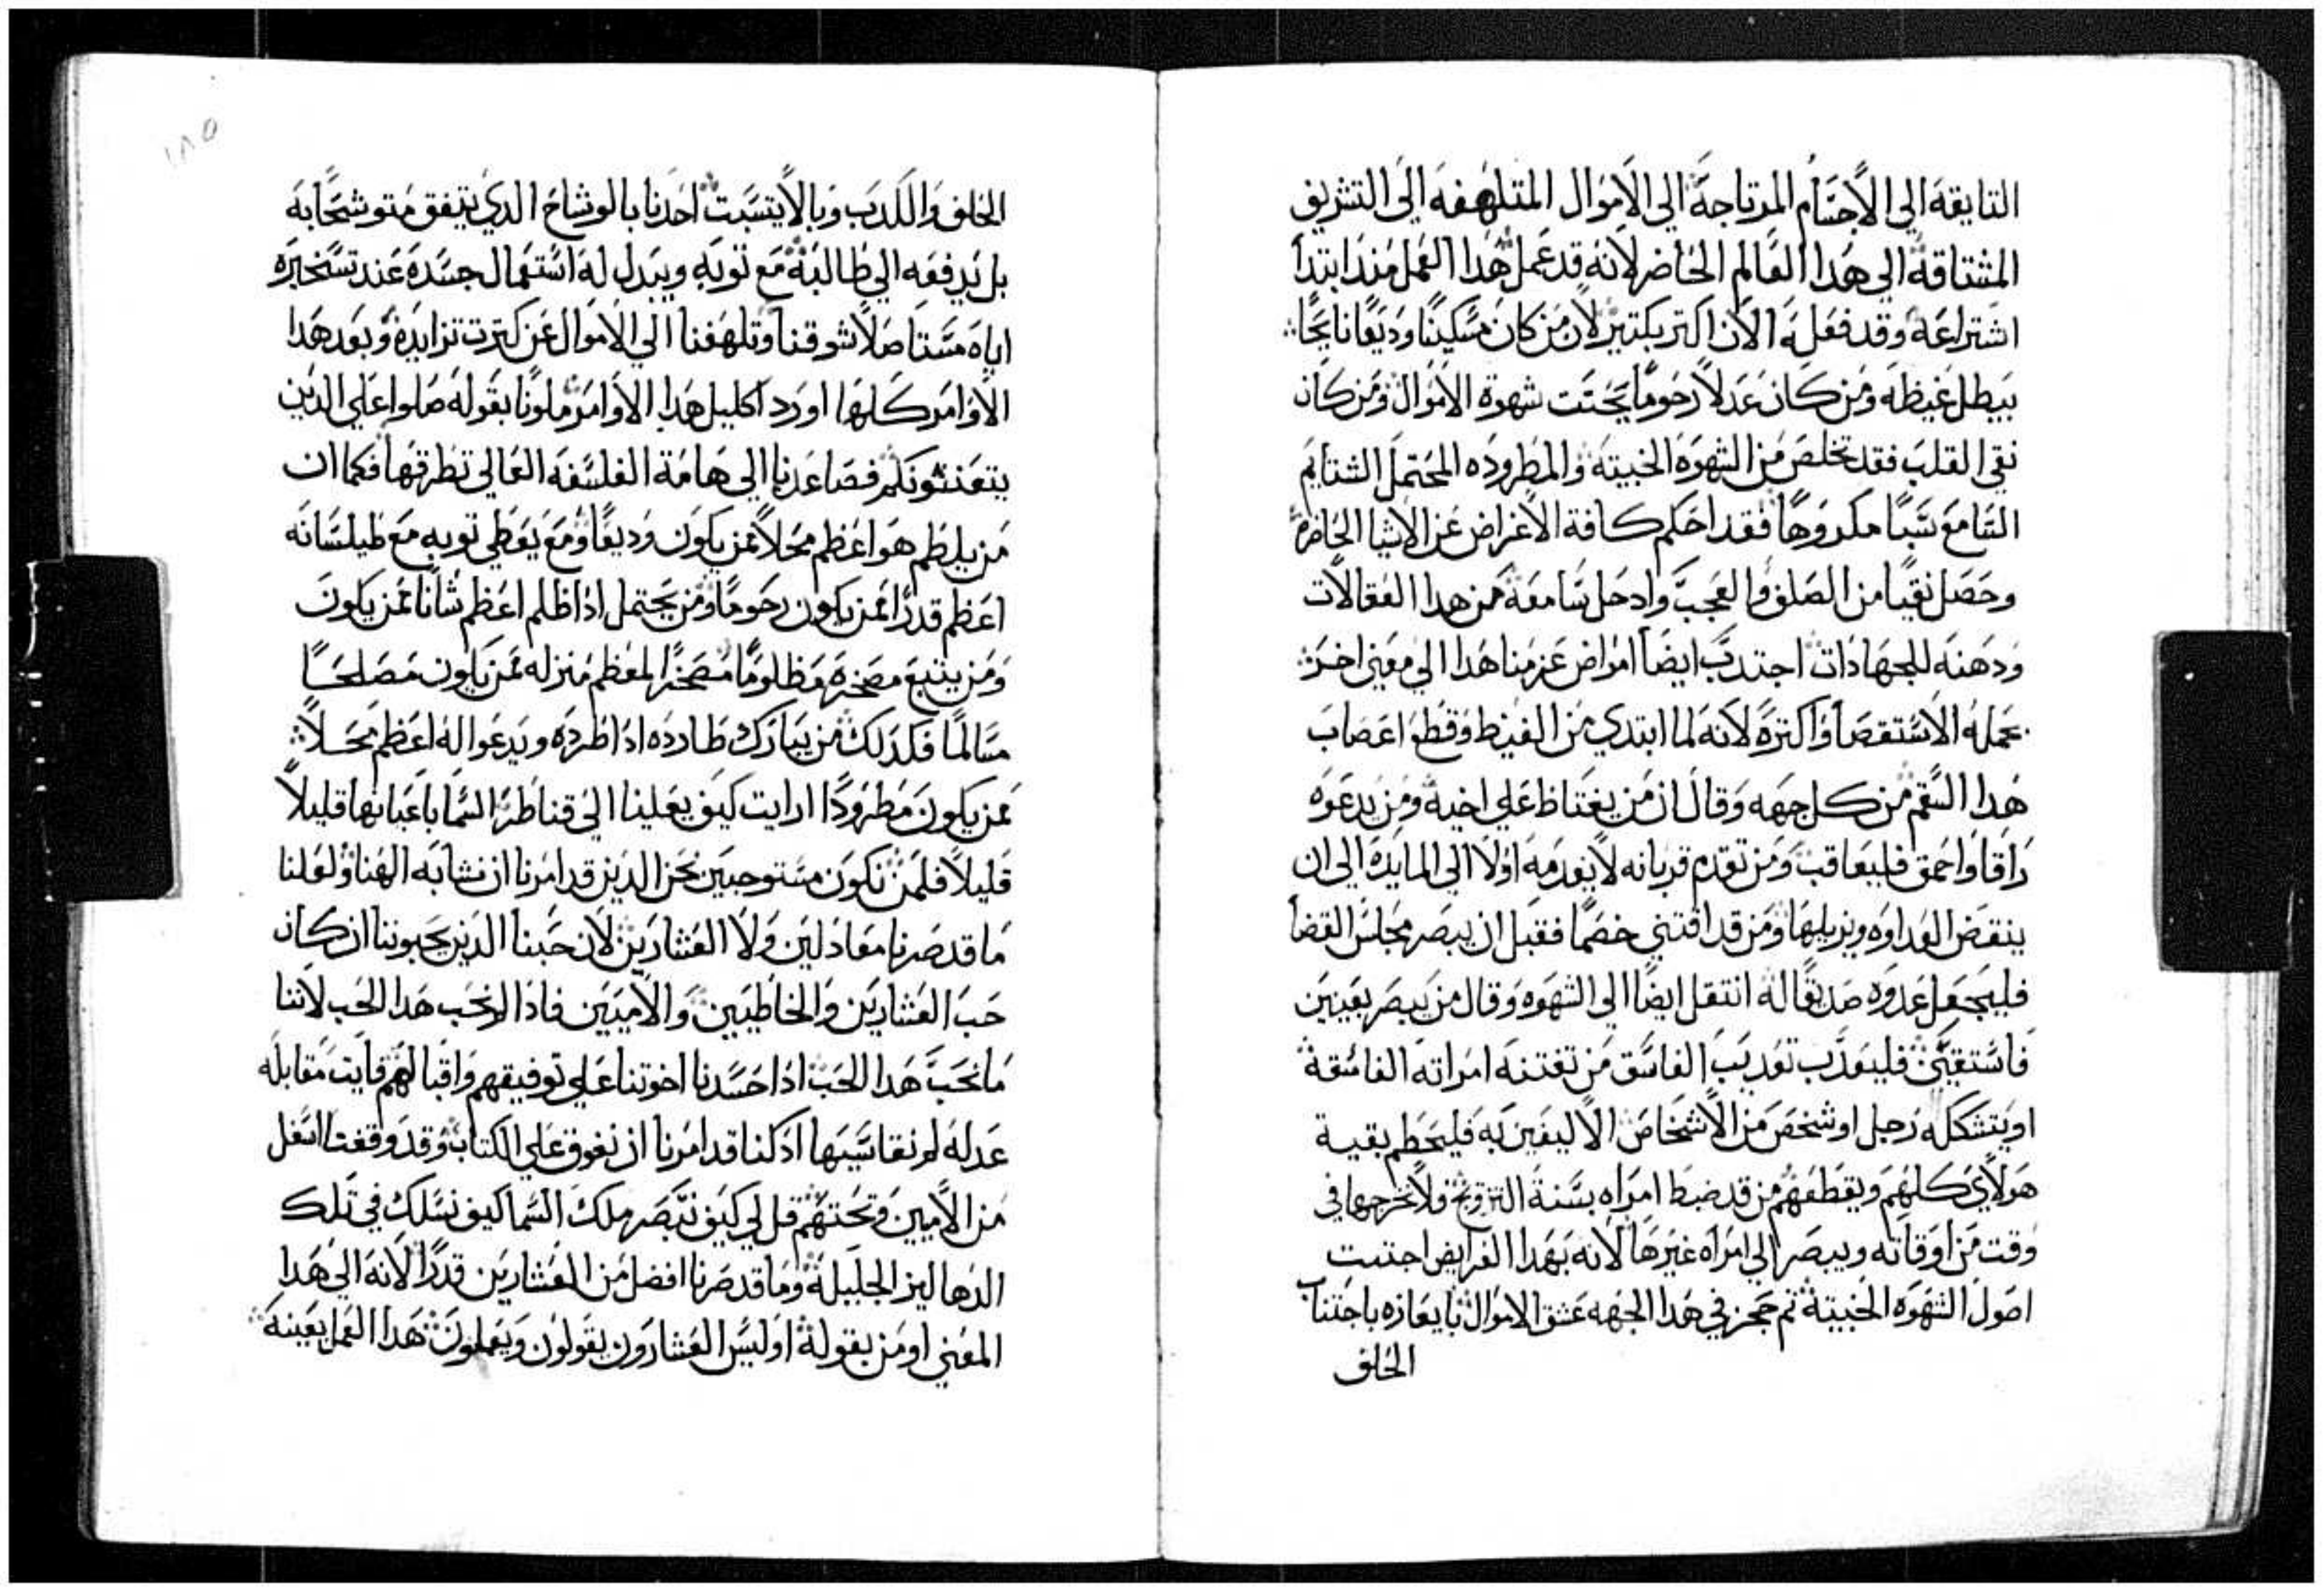 التايقة الي الاجسام المرتاجة الي الاموال المتلهفه الي التشريف
المشتاقة الي هدا العالم الحاضر لانه قد عمل هدا العمل مند ابتدا
اشتراعه وقد فعله الان اكتر بكتير لان من كان مسكينا وديعا نايحا
يبطل غيظه ومن كان عدلا رحوما يجتت شهوة الاموال ومن كان
نقي القلب فقد تخلص من الشهوه الخبيته والمطروده المحتمل الشتايم
السامع سبا مكروها فقد احكم كافة الاغراض عن الاشيا الحاضره
وحصل نقيا من الصلف والعجب وادحل سامعه من هدا العقالات
ودهنه للجهادات اجتدب ايضا امراض عزمنا هدا الي معني اخر
بحمله الاستقصا واكتره لانه لما ابتدي من الغيظ وقطع اعصاب
هدا السقم من كل جهه وقال ان من يغتاظ علي اخيه ومن يدعوه
راقا واحمق فليعاقب ومن تقدم قربانه لا يقدمه اولا الي المايدة الي ان
ينقض العداوه ويزيلها ومن قد اقتني خصما فقبل ان يبصر مجلس القضا
فليجعل عدوه صديقا له انتقل ايضا الي الشهوه وقال من يبصر بعينين
فاستقيتين فليعدب تعديب الفاسق من تفتنه امراته الفاسقة
او يتشكله رجل او شخص من الاشخاص الاليفين به فليحطم بقية
هولاي كلهم ويقطعهم من قد ضبط امراه بسنة التزويج فلا يخرجها في
وقت من اوقاته ويبصر الي امراه غيرها لانه بهدا الفرايض اجتتت
اصول الشهوه الخبيتة تم حجز في هدا الجهه عشق الاموال بايعازه باجتناب
الحلف
١٨٥
الحلف والكدب وبالا يتسبت احدنا بالوشاح الدي يتفق متوشحا به
بل يدفعه الي طالبه مع توبه ويبدل له استعمال جسده عند تسخيره
اياه مستاصلا شوقنا وتلهفنا الي الاموال عن كترت تزايده وبعد هدا
الاوامر كلها اورد اكليل هدا الاوامر ملونا بقوله صلوا علي الدين
يتعنتونكم فصاعدنا الي هامة الفلسفه العالي تطرقها فكما ان
من يلطم هو اعظم محلا ممن يكون وديعا ومع يعطي توبه مع طيلسانه
اعظم قدرا ممن يكون رحوما ومن يحتمل ادا ظلم اعظم شانا ممن يكون
ومن يتبع مضخره مظلوما مضخرا لمعظم منزله ممن يكون مصلحا
مسالما فكدلك من يبارك طارده ادا طرده ويدعوا له اعظم محلا
ممن يكون مطرودا ارايت كيف يعلينا الي قناطر السما باعيانها قليلا
قليلا فلمن نكون مستوجبين نحن الدين قد امرنا ان نشابه الهنا ولعلنا
ما قد صرنا معادلين ولا العشارين لان حبنا الدين يحبوننا ان كان
حب العشارين والخاطيين والاميين فادا لم نحب هدا الحب لاننا
ما نحب هدا الحب ادا حسدنا اخوتنا علي توفيقهم واقبالهم فايت مقابله
عدله لم نقاسيها اد كنا قد امرنا ان نفوق علي الكتاب وقد وقفنا اسفل
من الاميين وتحتهم قل لي كيف نبصر ملك السما كيف نسلك في تلك
الدهاليز الجليلة وما قد صرنا افضل من العشارين قدرا لانه الي هدا
المعني اومن بقوله اوليس العشارون يقولون ويعملون هدا العمل بعينه